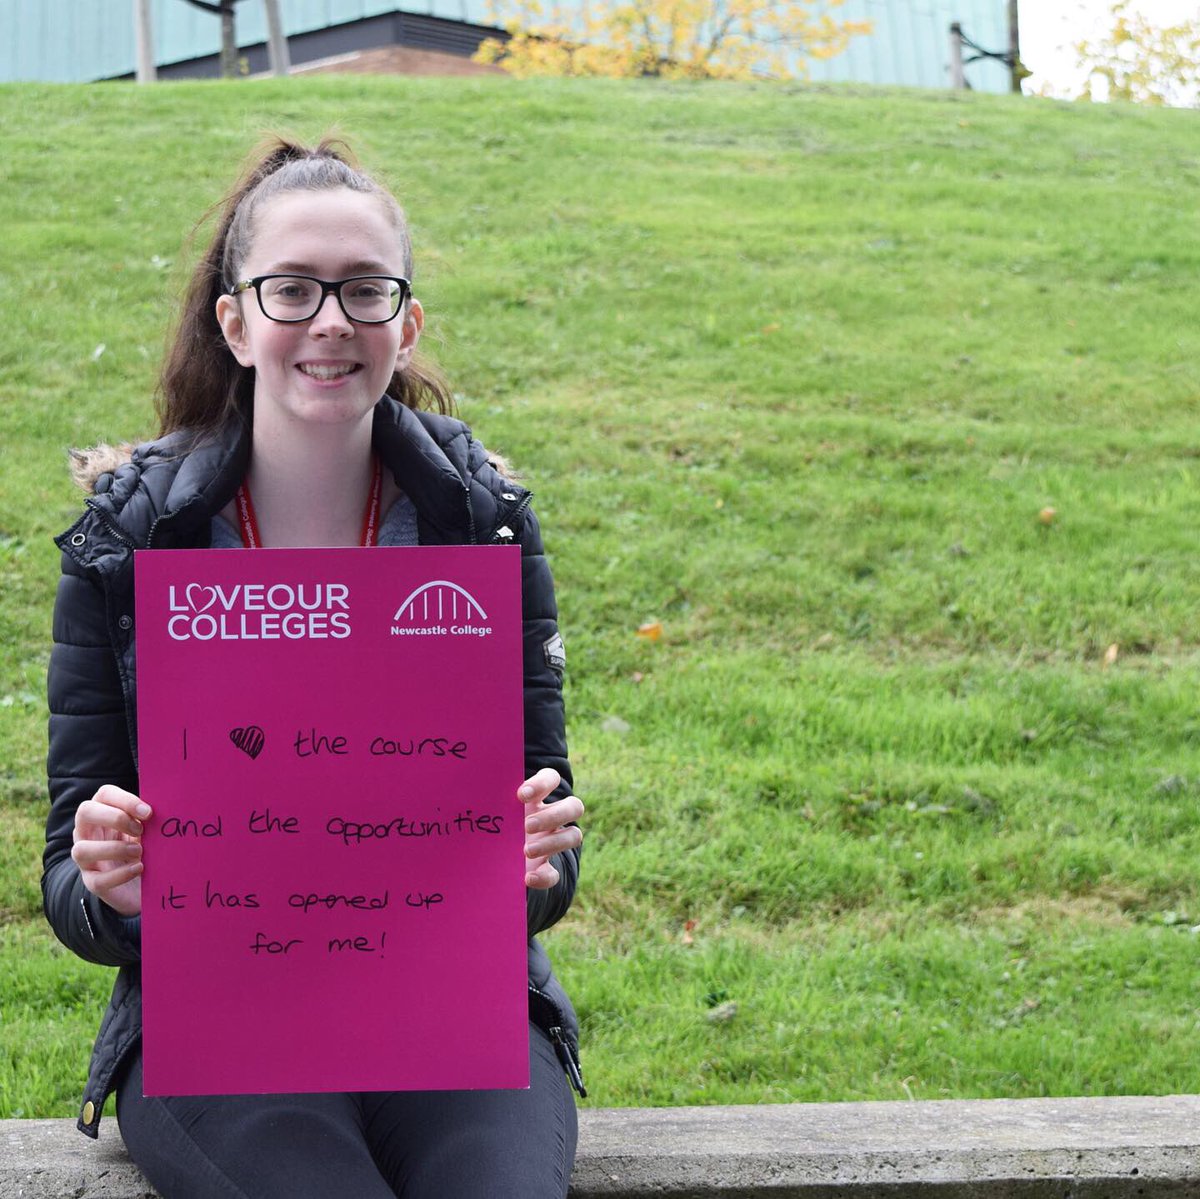 LOVEOUR
COLLEGES
Newcastle College
I ♥ the course
and the opportunities
it has opened up
for me!
Newcastle College